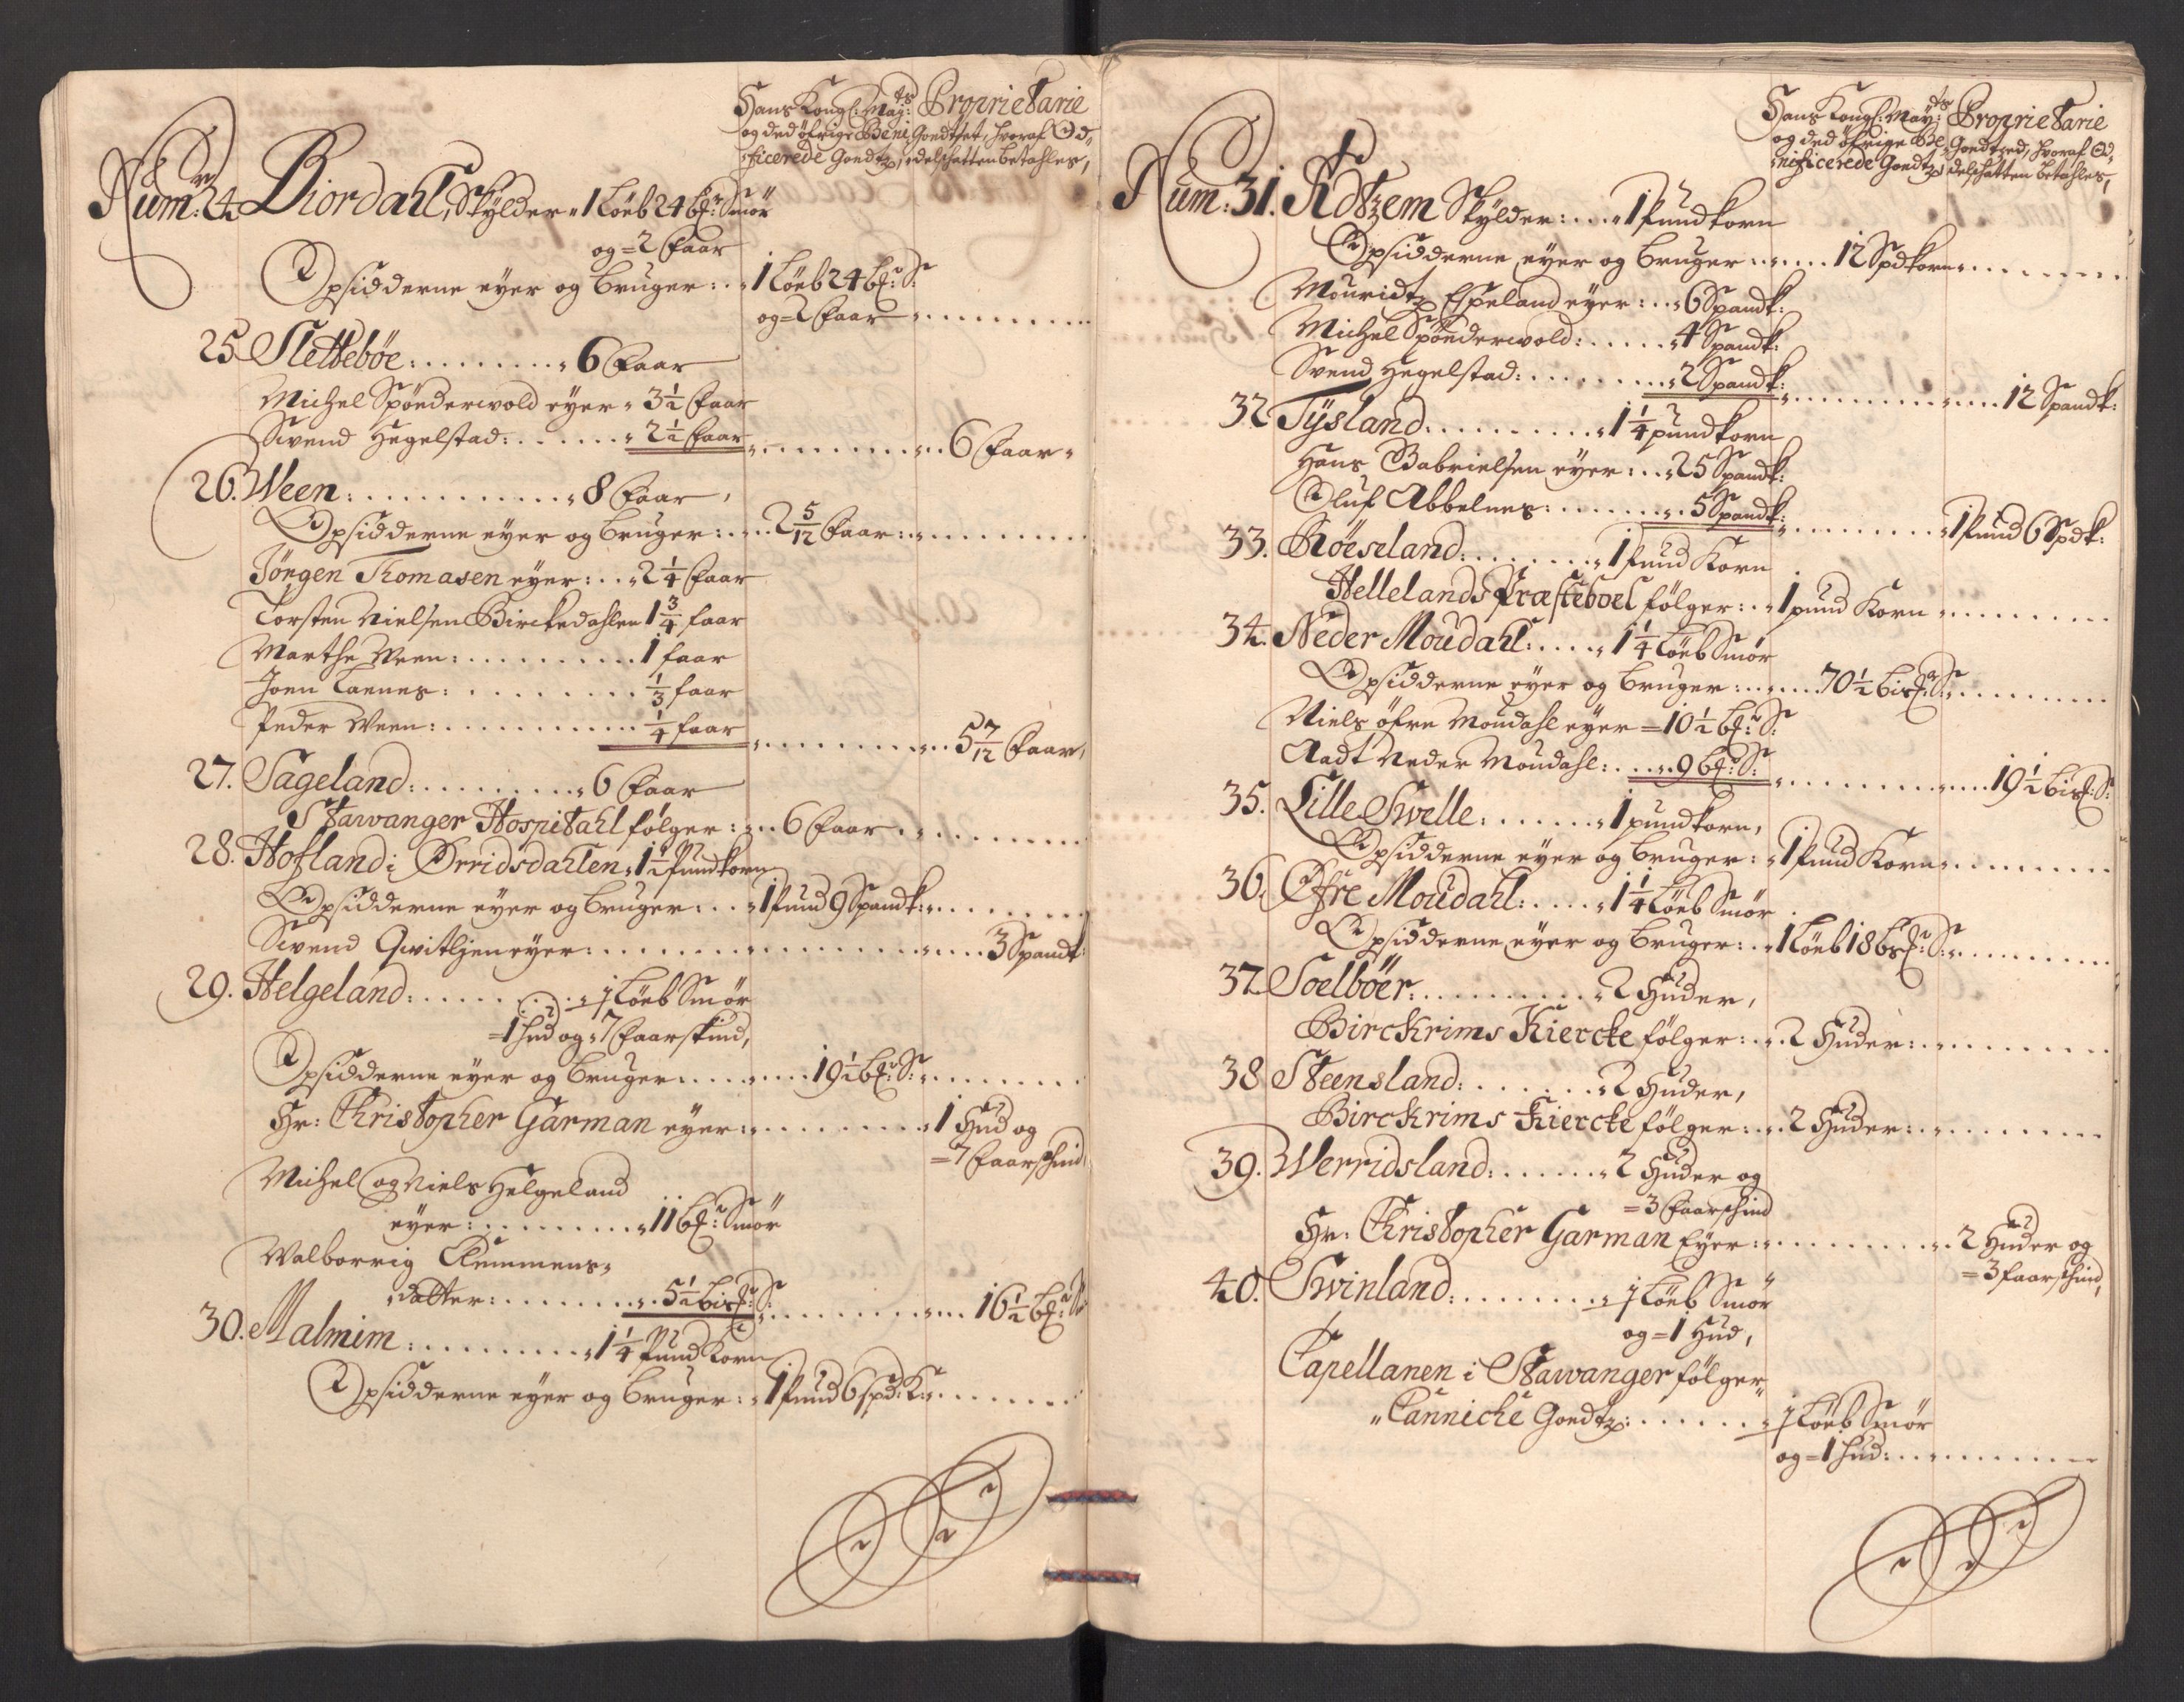 Hans Kongl: May:ts Proprietarie
og ded öfrige Beni Goedtset, hvoraf Od-
ficerede Goedtz, delschatten betahles,
Num: 24 Biordahl, Skylder „ 1 Löeb 24 bs:r Smör
og = 2 Faar
Opsidderne eyer og bruger: . „ 1 Löeb 24 bs:r S:
og = 2 Faar
25. Sletteböe: . . . . . . . . „ 6 Faar
Michel Spönderwold eyer „ 3½ Faar
Swend Hegelstad: . . . . . . „ 2½ Faar . . . . . . . . . 6 Faar „
26. Ween: . . . . . . . . . . . „ 8 Faar,
Opsidderne eyer og bruger: . . . 2 5/12 Faar: . . . . . . . .
Jörgen Thomasen eyer: . . „ 2¼ Faar
Torsten Nielsen Birckedahlen 1¾ faar
Marthe Ween: . . . . . . . . . . 1 faar
Joen Tannes: . . . . . . . . . ⅓ faar
Peder Ween: . . . . . . . . . . . ¼ faar . . . . . . . . . . 5 7/12 Faar,
27. Sageland: . . . . . . . . . „ 6 Faar
Stawanger Hospitahl fölger: . . . 6 Faar . . . . . . . . .
28. Hofland i Örridsdahlen „ 1½ Pundkorn
Opsidderne eyer og bruger: . . „ 1 Pund 9 Spandk: . . . . . . . .
Swend Qwitljen eyer: . . . . . . . . . . . . . . . . . . 3 Spandk
29. Helgeland: . . . . . . . . „ ½ Löeb Smör
= 1 Hud og „ 7 Faarskind,
Opsidderne eyer og bruger: . . . . . . . 19½ bs:r S: . . . . . . . .
Hr: Christopher Garman eyer: . . . . . . . . . „ 1 Hud og
= 7 Faarschind
Michel og Niels Helgeland
eyer: . . . . . . . . „ 11 bs:r Smör
Walborrig Clemmens„
„datter: . . . . . . . . 5½ bis:r S: . . . . . . . . . . 16½ bs:r S
30. Malmim: . . . . . . . . . „ 1¼ Pund Korn
Opsidderne eyer og bruger: „ 1 Pund 6 Spd: K: . . . . . . . .
Hans Kongl: May:ts Proprietarie
og ded öfrige Be Goedtzed, hvoraf Od-
nificerede Goedtz delschatten betahles,
Num: 31. Ådtzem Skylder: . . . „ 1 Pundkorn
Opsidderne eyer og bruger: . . . . . . 12 Spdkorn . . . . . . . . .
Mouridtz Espeland eyer: . . „ 6 Spandk:
Michel Spönderwold: . . . . . „ 4 Spandk:
Svend Hegelstad: . . . . . . . . . „ 2 Spandk: . . . . . . . . . . . . . 12 Spandk:
32. Tÿsland . . . . . . . . . . . „ 1¼ pundkorn
Hans Gabrielsen eyer: . . . 25 Spandk:
Oluf Abbelnes: . . . . . . . „ 5 Spandk: . . . . . . . . . . „ 1 Pund 6 Spdk:
33. Röeseland: . . . . . . . . „ 1 Pund Korn
Hellelands Præsteboel fölger: . . „ 1 pund Korn . . . . . . . . .
34. Neder Moudahl: . . . . „ 1¼ Löeb Smör
Opsidderne eyer og bruger: . . . . . 70½ bis:r S: . . . . . . . .
Niels öfre Moudahl eyer = 10½ bs:r S:
Aadt Neder Moudahl: . . . „ 9 bs:r S: . . . . . . . . . . . 19½ bis: S:
35. Lille Swelle: . . . . . . . „ 1 pundkorn,
Opsidderne eyer og bruger: „ 1 Pund Korn . . . . . . . . .
36. Öfre Moudahl: . . . . „ 1¼ Löeb Smör
Opsidderne eyer og bruger: . „ 1 Löeb 18 bs:r S: . . . . . . . . .
37. Soelböer: . . . . . . . . . . „ 2 Huder,
Birckrims Kiercke fölger: . . „ 2 Huder: . . . . . . . . .
38. Steensland: . . . . . . . „ 2 Huder,
Birckrims Kiercke fölger: . . . 2 Huder: . . . . . . . . .
39. Werridsland: . . . . . . „ 2 Huder og
= 3 Faarschind
Hr: Christopher Garman Eyer: . . . . . . . . . . „ 2 Huder og
= 3 faarschind,
40. Swinland: . . . . . . . . . „ ½ Löeb Smör
og = 1 Hud,
Capellanen i Stawanger fölger„
„Cannicke Goedtz: . . . . . . „ ½ Löeb Smör
og = 1 Hud: . . . . . . . . .